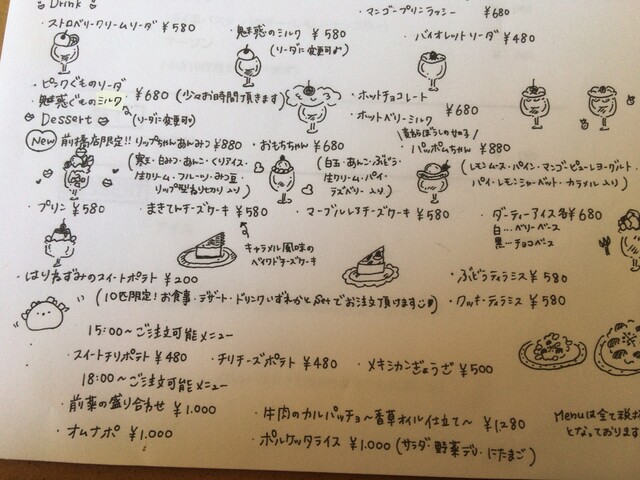 Drink
・ストロベリークリームソーダ ¥580
・魅惑のミルク ¥580
(ソーダに変更可♪)
・マンゴープリンラッシー ¥680
・バイオレットソーダ ¥480
・ピンクぐものソーダ
・魅惑ぐものミルク ¥680 (少々お時間頂きます)
(ソーダに変更可)
・ホットチョコレート
・ホットベリーミルク ¥680
Dessert
New 前橋店限定!! リップちゃんあんみつ ¥880
(寒天・白みつ・あんこ・くりアイス・
生クリーム・フルーツ・みつ豆・
リップ型 入り)
・おもちちゃん ¥680
(白玉・あんこ・ぶどう・
生クリーム・パイ・
ラズベリー入り)
・パッポんちゃん ¥880
(レモンムース・パイン・マンゴーピューレヨーグルト・
パイ・レモンシャーベット・カラメル入り)
・プリン ¥580
・まきてんチーズケーキ ¥580
キャラメル風味の
ベイクドチーズケーキ
・マーブルレアチーズケーキ ¥580
・ダーティーアイス 各¥680
白…ベリーベース
黒…チョコベース
・はりねずみのスイートポテト ¥200
(10匹限定!お食事・デザート・ドリンクいずれかとSetでご注文頂けます)
・ぶどうティラミス ¥580
・クッキーティラミス ¥580
15:00〜ご注文可能メニュー
・スイートチリポテト ¥480
・チリチーズポテト ¥480
・メキシカンぎょうざ ¥500
18:00〜ご注文可能メニュー
・前菜の盛り合わせ ¥1.000
・牛肉のカルパッチョ〜香草オイル仕立て〜 ¥1280
・オムナポ ¥1.000
・ポルケッタライス ¥1.000 (サラダ・野菜デリ・にたまご)
Menuは全て税抜
となっております